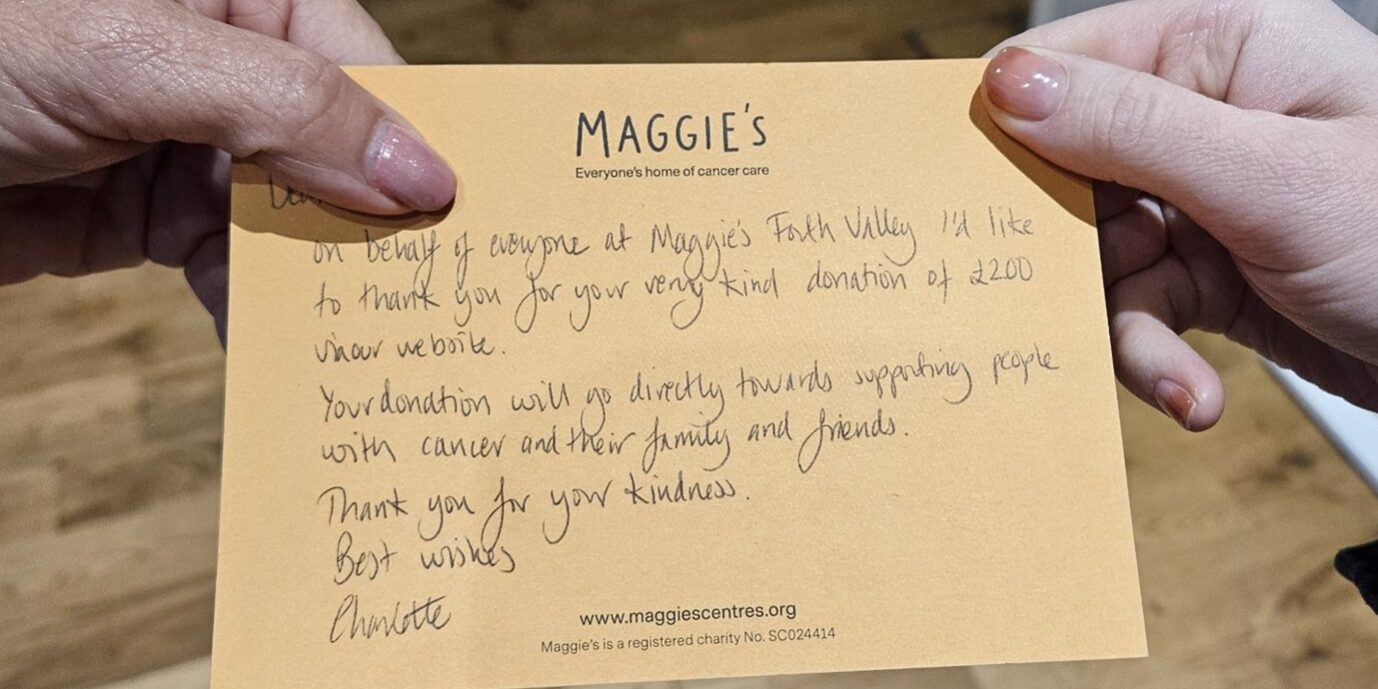 MAGGIE'S
Everyone's home of cancer care
on behalf of everyone at Maggie's Forth Valley I'd like
to thank you for your very kind donation of £200
via our website.
Your donation will go directly towards supporting people
with cancer and their family and friends.
Thank you for your kindness.
Best wishes
Charlotte
www.maggiescentres.org
Maggie's is a registered charity No. SC024414